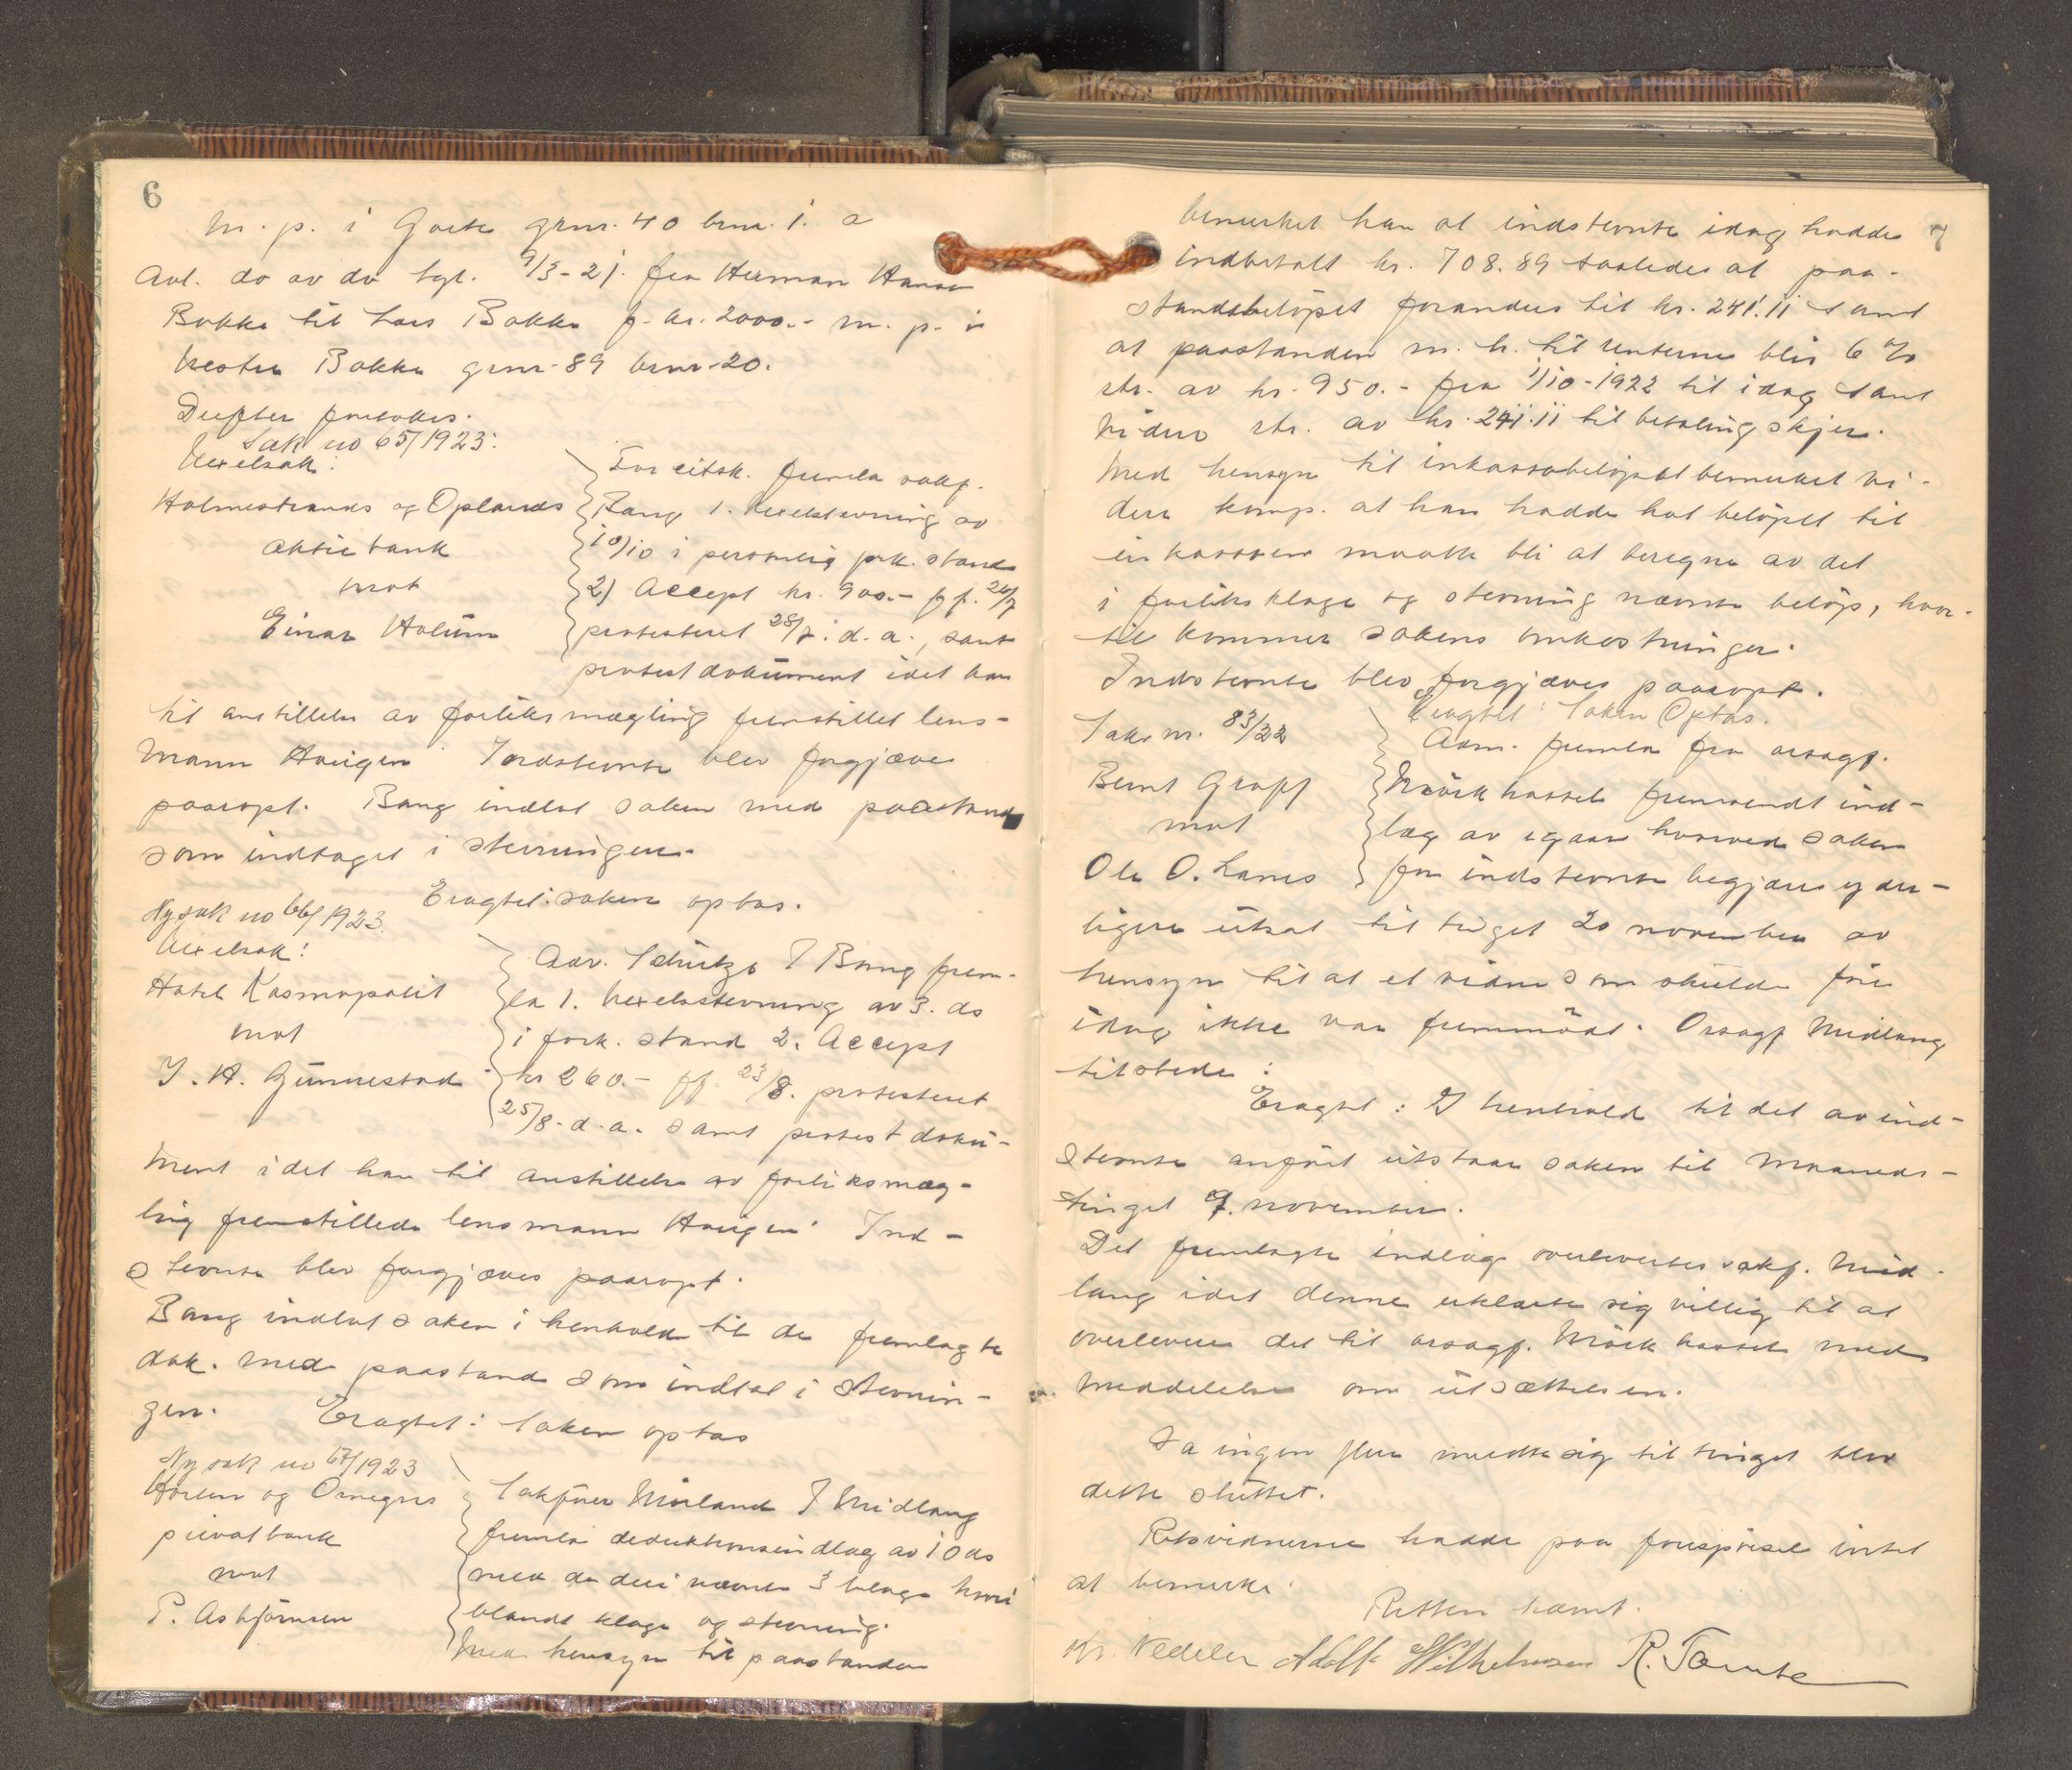 6
m. p. i Gaete grnr. 40 brnr. 1. a
Avl. do av do tgl. 9/3-21. fra Herman Hansen
Bakke til Lars Bakke f. kr. 2000.- m. p. i
Vestre Bakke grnr. 89 brnr. 20.
Derefter foretokes.
Sak no 65/1923:
Vexelsak:
Holmestrands og Oplands
aktiebank
mot
Einar Holum
For citsk. fremla sakf.
Bang 1. Vexelstevning av
10/10 i personlig fork. stand
2) Accept kr. 900.- pf. 26/7
protesteret 28/7. d. a., samt
protestdokument idet han
til anstillelse av forliksmægling fremstillet lens-
mann Haugen. Indstevnte blev forgjæves
paaropt. Bang indlot saken med paastand
som indtaget i stevningen.
Eragtet: saken optas.
Ny sak no 66/1923.
Vexelsak:
Hotel Kosmopolit
mot
J. A. Gunnestad
Adv. Schützs F Bang frem-
la 1. Vexelsstevning av 3. ds
i fork. stand 2. Accept
kr 260.- pf. 23/8. protesteret
25/8. d. a. samt protestdoku-
ment idet han til anstillelse av forliksmæg-
ling fremstillede lensmann Haugen. Ind-
stevnte blev forgjæves paaropt.
Bang indlot saken i henhold til de fremlagte
dok. med paastand som indtat i stevnin-
gen. Eragtet: Saken optas
Ny sak no 67/1923
Horten og Omegns
privatbank
mot
P. Asbjørnsen
Sakfører Mørland F Midlang
fremla deduktionsindlæg av 10 ds
med de deri nævnte 3 bilage hvori
blandt klage og stevning.
Med hensyn til paastanden
7
bemerket han at indstevnte idag hadde
indbetalt kr. 708.89 saaledes at paa-
standsbeløpet forandres til kr. 241.11 samt
at paastanden m. h. til renterne blir 6 %
str. av kr. 950.- fra 1/10-1922 til idag samt
videre str. av kr. 241.11 til betaling skjer.
Med hensyn til inkassobeløpet bemerket vi-
dere komp. at han hadde hat beløpet til
inkassoen maatte bli at beregne av det
i forliksklage og stevning nævnte beløp, hvor-
til kommer sakens omkostninger.
Indstevnte blev forgjæves paaropt.
Eragtet: Saken Optas.
Sak nr. 83/22
Bernt Graff
mot
Ole O. Lanes
Adm. fremla fra orsagf.
Mörk hassel fremsendt ind-
læg av igaar hvorved saken
for indstevnte begjæres yder-
ligere utsat til tinget 20 november av
hensyn til at et vidne som skulde føres
idag ikke var fremmødt. Orsagf Midlang
tilstede:
Eragtet: I henhold til det av ind-
stevnte anført utstaar saken til maaneds-
tinget 9. november.
Det fremlagte indlæg overlevertes sakf. Mid-
lang idet denne erklærte sig villig til at
overlevere det til orsagf. Mörk hassel med
meddelelse om utsættelsen.
Da ingen flere meldte sig til tinget blev
dette sluttet.
Retsvidnerne hadde paa forespørsel intet
at bemerke.
Retten hævet.
Kr. Nedeler Adolf Wilhelmsen R. Tomte